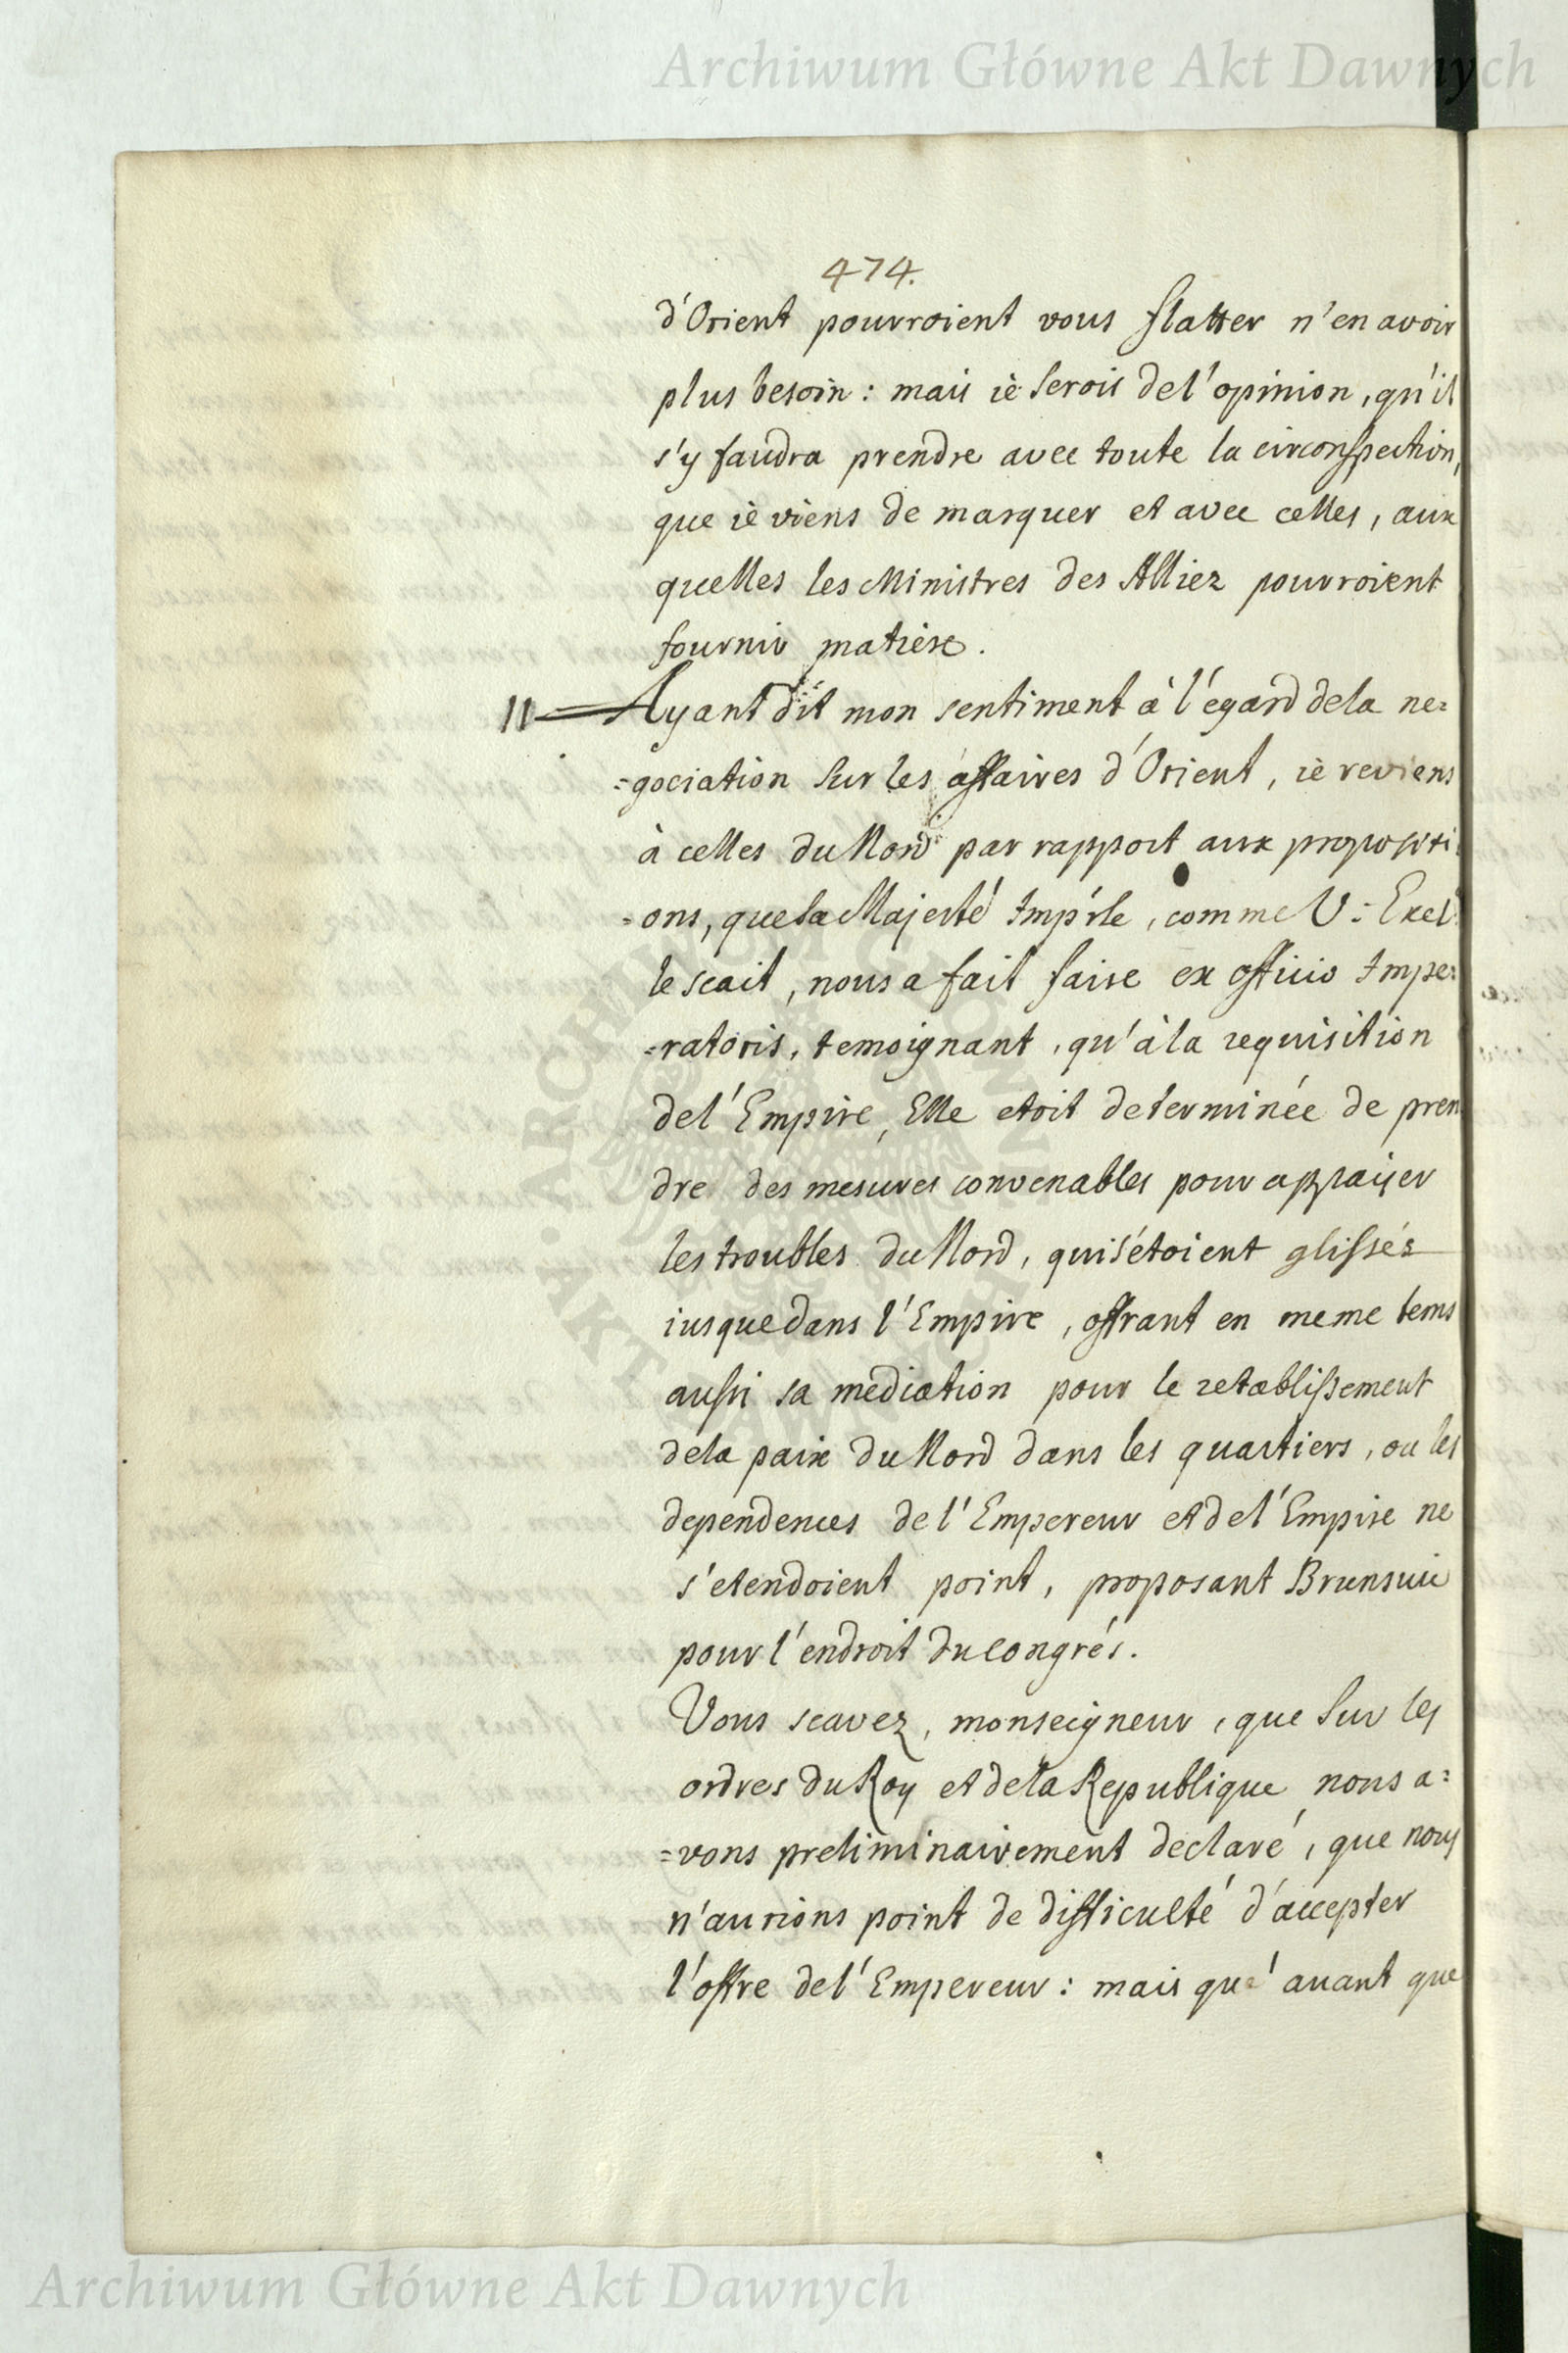 Archiwum Główne Akt Dawnych
474.
d'Orient pourroient vous flatter n'en avoir
plus besoin : mais ie serois de l'opinion, qu'il
s'y faudra prendre avec toute la circonspection,
que ie viens de marquer et avec celles, aux
quelles les Ministres des Alliez pourroient
fournir matiere.
11 Ayant dit mon sentiment à l'égard de la ne=
=gociation sur les affaires d'Orient, ie reviens
à celles du Nord par rapport aux propositi
=ons, que sa Majesté Imp'rle, comme V: Excl
le scait, nous a fait faire ex officio Impe=
=ratoris, temoignant, qu'à la requisition
de l'Empire, Elle etoit determinée de pren
dre des mesures convenables pour appaiser
les troubles du Nord, qui s'étoient glissés
iusque dans l'Empire, offrant en meme tems
aussi sa mediation pour le retablissement
de la paix du Nord dans les quartiers, ou les
dependences de l'Empereur et de l'Empire ne
s'etendoient point, proposant Brunsuic
pour l'endroit du congrés.
Vous scavez, monseigneur, que sur les
ordres du Roy et de la Republique nous a=
=vons preliminairement declaré, que nous
n'aurions point de difficulté d'accepter
l'offre de l'Empereur : mais que' auant que
ARCHIWUM GŁÓWNE AKT DAWNYCH
Archiwum Główne Akt Dawnych